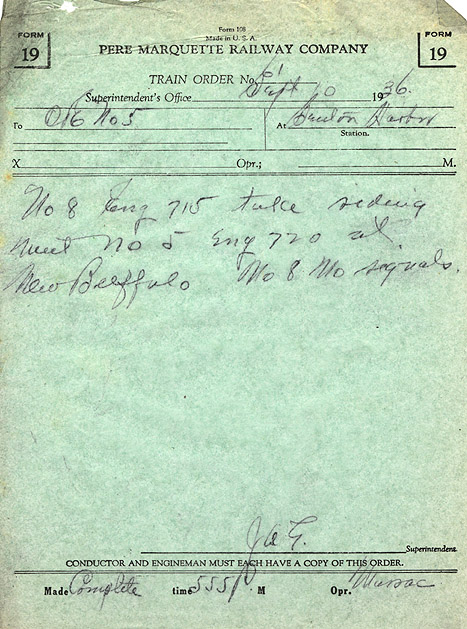 Form 108
Made in U. S. A.
FORM 19
FORM 19
PERE MARQUETTE RAILWAY COMPANY
TRAIN ORDER No. 61
Superintendent's Office Sept 10 1936.
To C&E No 5 At Benton Harbor
Station.
X Opr.; M.
No 8 Eng 715 take siding
meet No 5 Eng 720 at
New Buffalo No 8 No signals.
J A G.
Superintendent
CONDUCTOR AND ENGINEMAN MUST EACH HAVE A COPY OF THIS ORDER.
Made Complete time 555 P. M Opr.